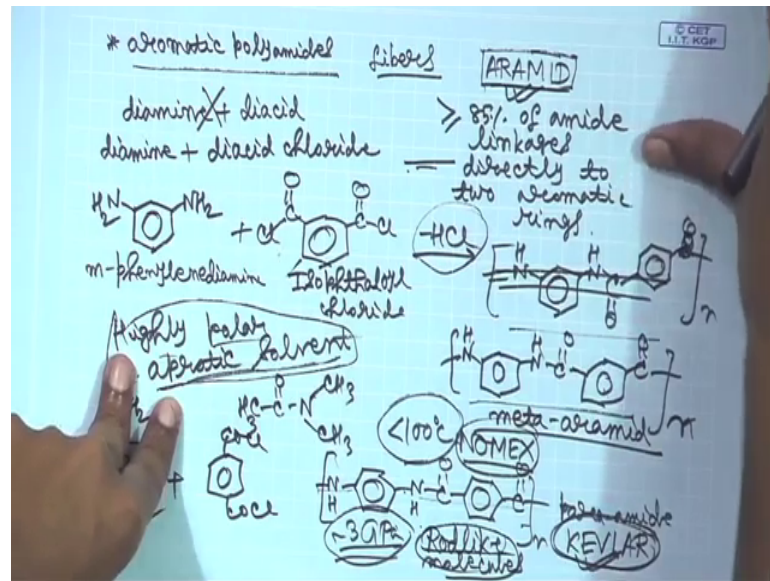 © CET
I.I.T. KGP
* aromatic polyamides fibers ARAMID
diamine + diacid
diamine + diacid chloride
≥ 85% of amide
linkages
directly to
two aromatic
rings.
H2N NH2 + Cl C O C O Cl -HCl
m-phenylenediamine
Isophthaloyl
chloride
N H N H C O O n
Highly polar
aprotic solvent
N H N H C O C O n
meta-aramid
H3C-C-N O CH3 CH3
<100°C NOMEX
+ COCl COCl
N H N H C O C O n
para-amide
~3GPa Rodlike
molecules
KEVLAR